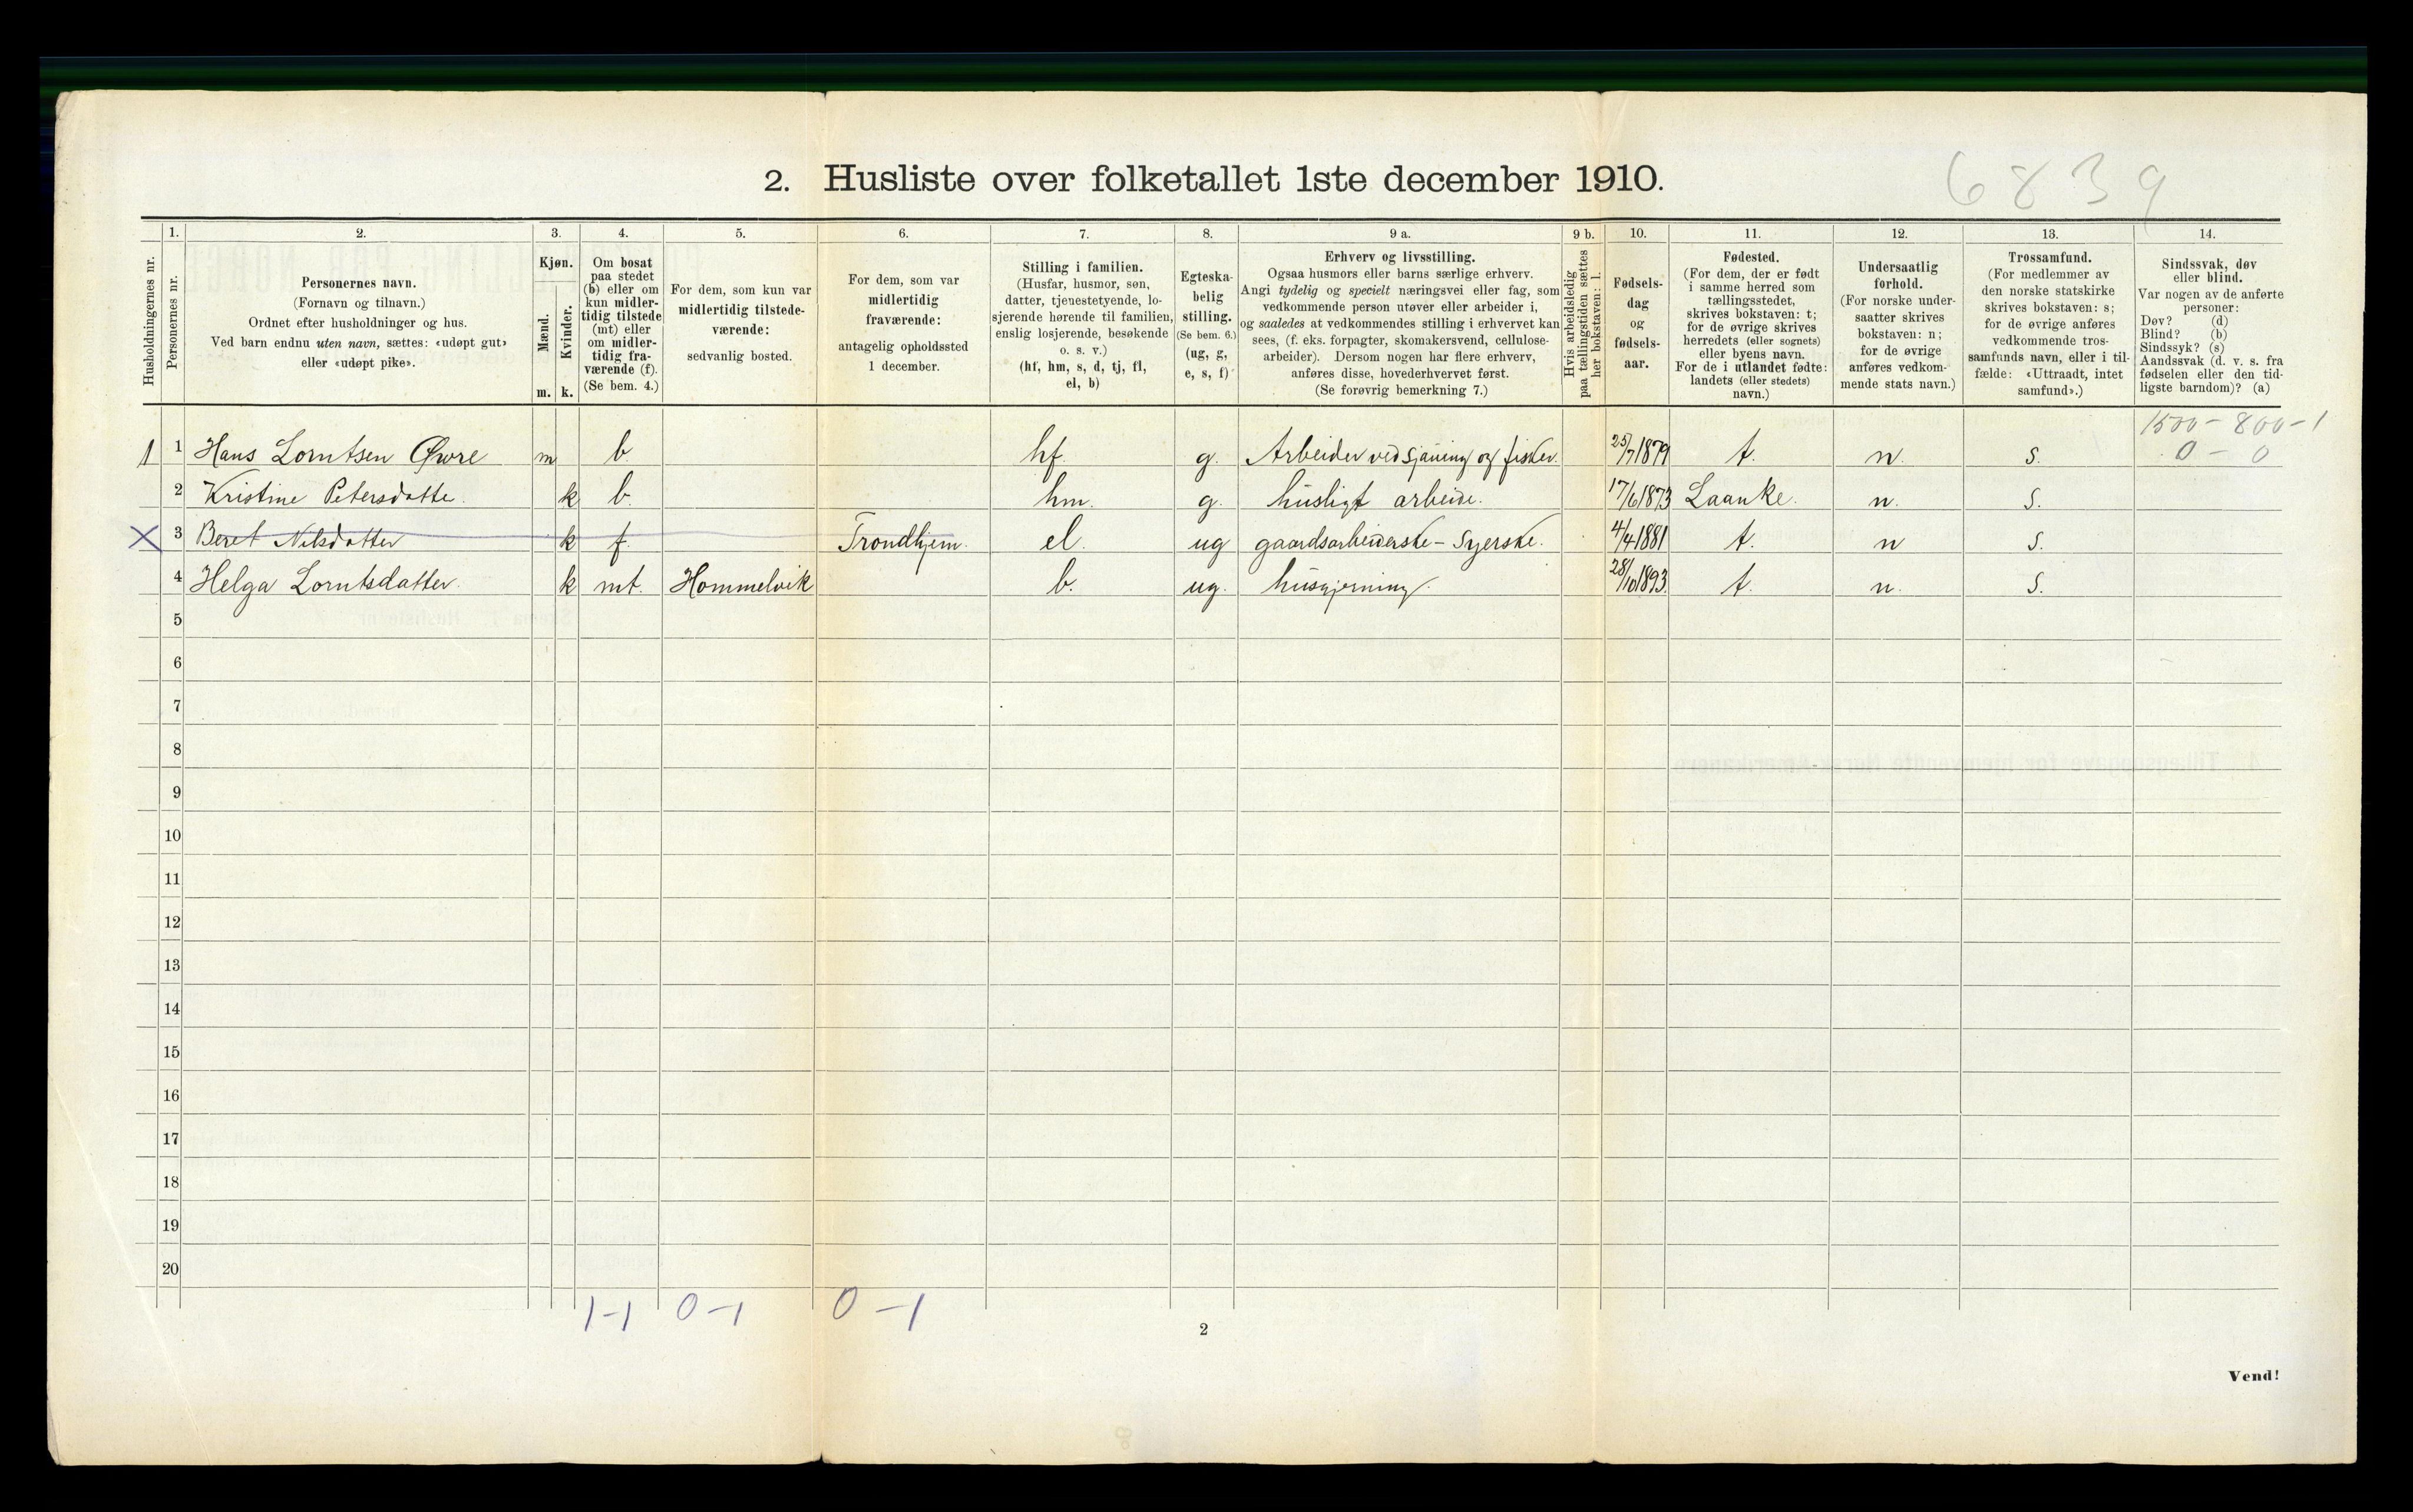 2. Husliste over folketallet 1ste december 1910.
6839
1. 2. 3. 4. 5. 6. 7. 8. 9 a. 9 b. 10. 11. 12. 13. 14.
Husholdningernes nr.
Personernes nr.
Personernes navn.
(Fornavn og tilnavn.)
Ordnet efter husholdninger og hus.
Ved barn endnu uten navn, sættes: «udøpt gut»
eller «udøpt pike».
Kjøn.
Mænd.
Kvinder.
m. k.
Om bosat
paa stedet
(b) eller om
kun midler-
tidig tilstede
(mt) eller
om midler-
tidig fra-
værende (f).
(Se bem. 4.)
For dem, som kun var
midlertidig tilstede-
værende:
sedvanlig bosted.
For dem, som var
midlertidig
fraværende:
antagelig opholdssted
1 december.
Stilling i familien.
(Husfar, husmor, søn,
datter, tjenestetyende, lo-
sjerende hørende til familien,
enslig losjerende, besøkende
o. s. v.)
(hf, hm, s, d, tj, fl,
el, b)
Egteska-
belig
stilling.
(Se bem. 6.)
(ug, g,
e, s, f)
Erhverv og livsstilling.
Ogsaa husmors eller barns særlige erhverv.
Angi tydelig og specielt næringsvei eller fag, som
vedkommende person utøver eller arbeider i,
og saaledes at vedkommendes stilling i erhvervet kan
sees, (f. eks. forpagter, skomakersvend, cellulose-
arbeider). Dersom nogen har flere erhverv,
anføres disse, hovederhvervet først.
(Se forøvrig bemerkning 7.)
Hvis arbeidsledig
paa tællingstiden sættes
her bokstaven: l.
Fødsels-
dag
og
fødsels-
aar.
Fødested.
(For dem, der er født
i samme herred som
tællingsstedet,
skrives bokstaven: t;
for de øvrige skrives
herredets (eller sognets)
eller byens navn.
For de i utlandet fødte:
landets (eller stedets)
navn.)
Undersaatlig
forhold.
(For norske under-
saatter skrives
bokstaven: n;
for de øvrige
anføres vedkom-
mende stats navn.)
Trossamfund.
(For medlemmer av
den norske statskirke
skrives bokstaven: s;
for de øvrige anføres
vedkommende tros-
samfunds navn, eller i til-
fælde: «Uttraadt, intet
samfund».)
Sindssvak, døv
eller blind.
Var nogen av de anførte
personer:
Døv? (d)
Blind? (b)
Sindssyk? (s)
Aandssvak (d. v. s. fra
fødselen eller den tid-
ligste barndom)? (a)
1500 - 800 - 1
1 1 Hans Lorntsen Øwre m b hf. g. Arbeider ved sjauing og fisker. 25/7 1879 t. n. s. 0 - 0
2 Kristine Petersdatte. k b. hm. g. husligt arbeide. 17/6 1873 Laanke. n. s.
X 3 Beret Nilsdatter k f. Trondhjem. el. ug gaardsarbeiderske - Syerske. 4/4 1881 t. n s.
4 Helga Lorntsdatter. k mt. Hommelvik b. ug. husgjerning. 28/10 1893. t. n. s.
5
6
7
8
9
10
11
12
13
14
15
16
17
18
19
20
1-1 0-1 0-1
2
Vend!